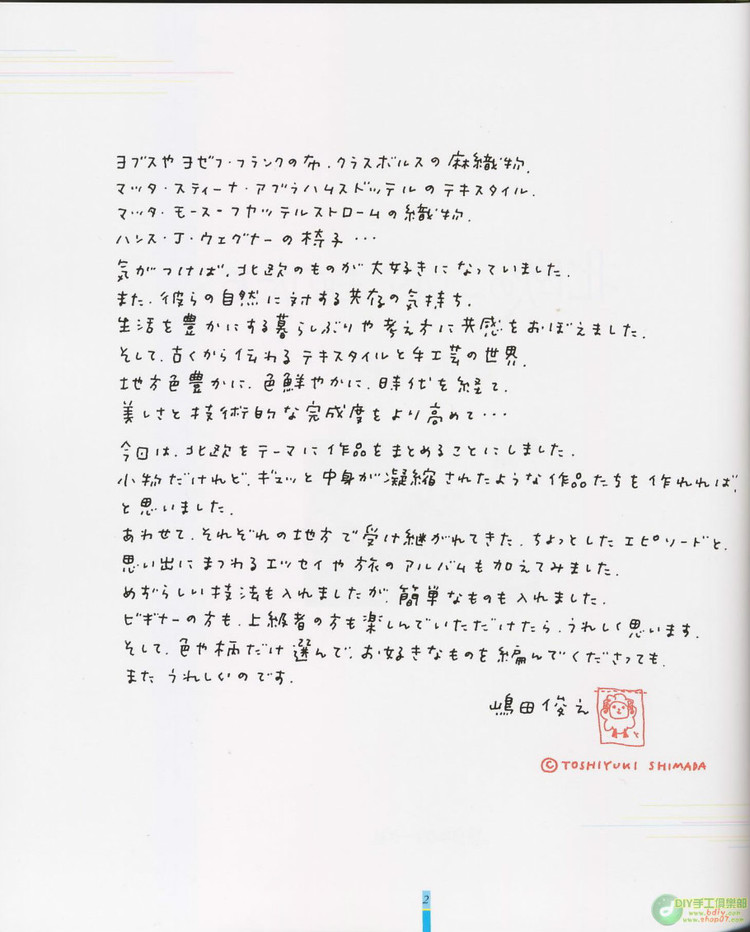 ヨブスやヨゼフ・フランクの布、クラスボルスの麻織物、
マッタ・スティーナ・アブラハムスドッテルのテキスタイル、
マッタ・モース-フヤッテルストロームの織物、
ハンス・J・ウェグナーの椅子・・・
気がつけば、北欧のものが大好きになっていました。
また、彼らの自然に対する共存の気持ち、
生活を豊かにする暮らしぶりや考え方に共感をおぼえました。
そして、古くから伝わるテキスタイルと手工芸の世界。
地方色豊かに、色鮮やかに、時代を経て、
美しさと技術的な完成度をより高めて・・・
今回は、北欧をテーマに作品をまとめることにしました。
小物だけれど、ギュッと中身が凝縮されたような作品たちを作れれば、
と思いました。
あわせて、それぞれの地方で受け継がれてきた、ちょっとしたエピソードと、
思い出にまつわるエッセイや旅のアルバムも加えてみました。
めずらしい技法も入れましたが、簡単なものも入れました。
ビギナーの方も、上級者の方も楽しんでいただけたら、うれしく思います。
そして、色や柄だけ選んで、お好きなものを編んでくださっても、
またうれしいのです。
嶋田俊之
©TOSHIYUKI SHIMADA
2
DIY手工俱樂部
www.bdiy.com
www.shop07.com